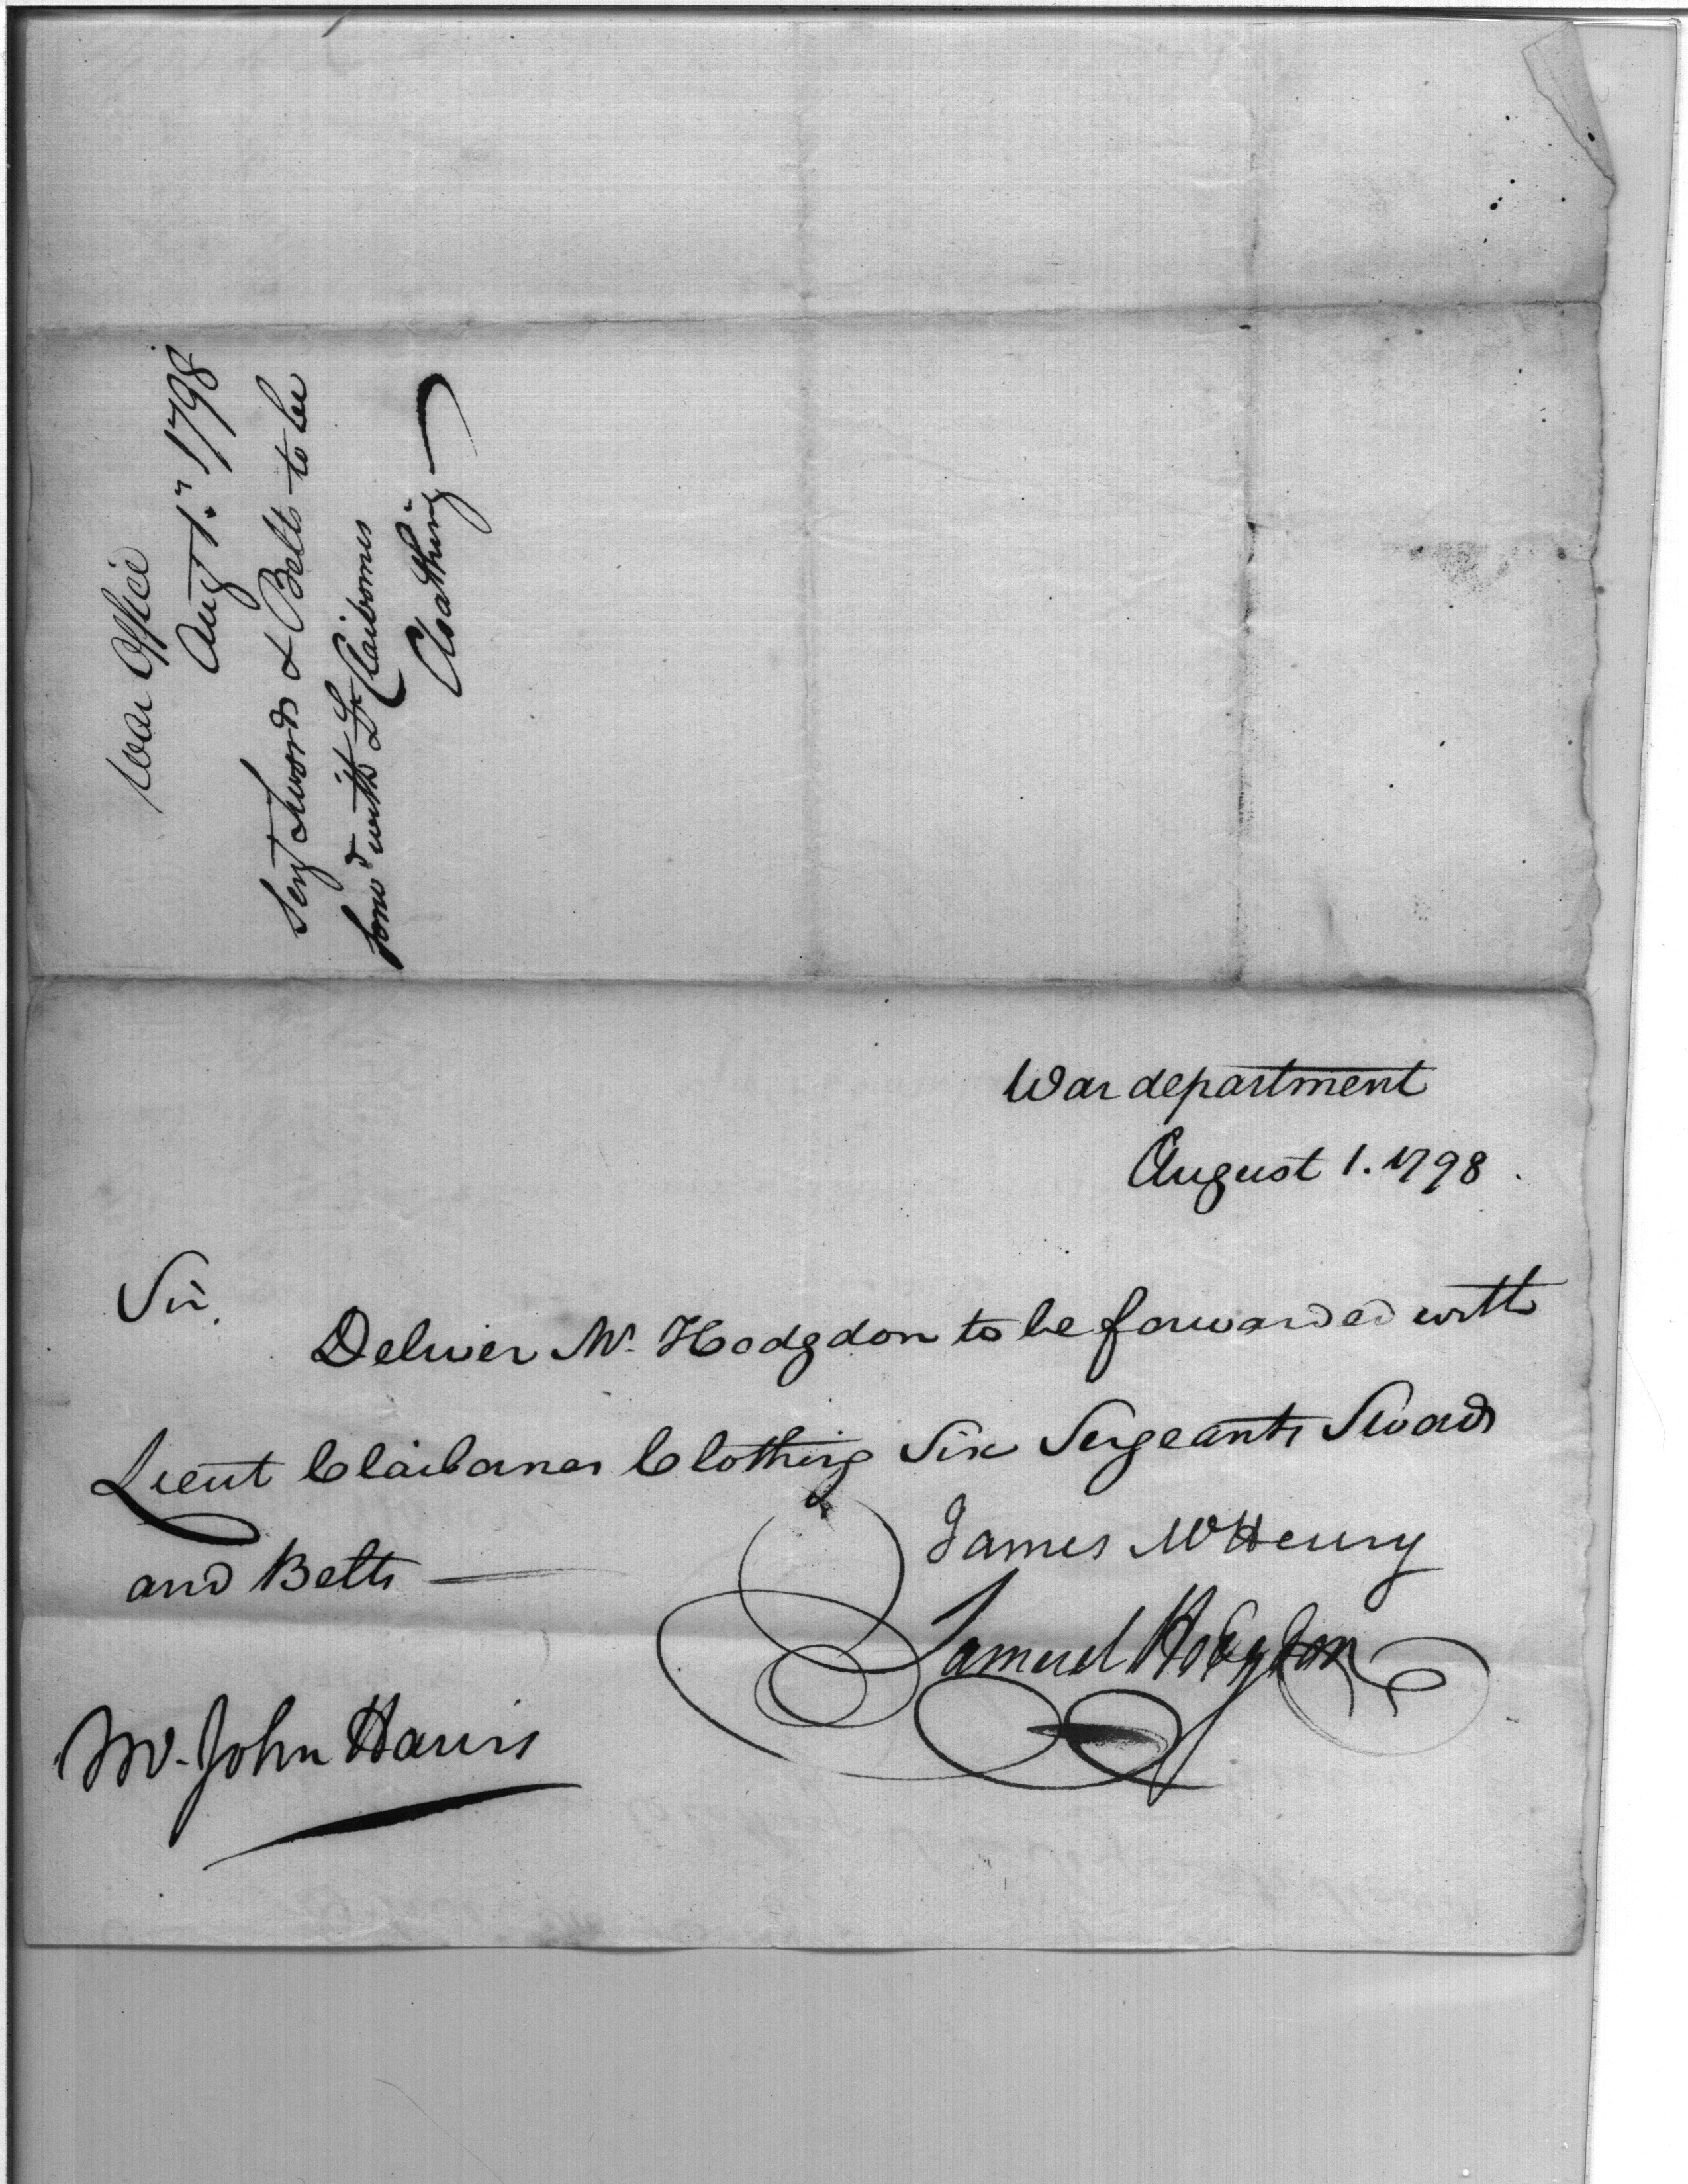 War Office
Aug 1st 1798
Serj Swords & Belts to be
forw'd with Lt Claibornes
Cloathing
War department
August 1. 1798.
Sir,
Deliver Mr. Hodgdon to be forwarded with
Lieut Claibornes Clothing Six Sergeants Swords
and Belts
James McHenry
Samuel Hodgdon
Mr. John Harris